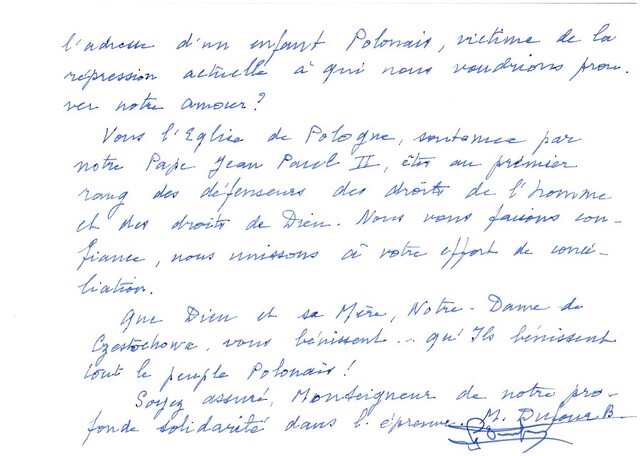 l'adresse d'un enfant Polonais, victime de la
répression actuelle à qui nous voudrions prou-
ver notre amour?
Vous l'Eglise de Pologne, soutenue par
notre Pape Jean Paul II, êtes au premier
rang des défenseurs des droits de l'homme
et des droits de Dieu. Nous vous faisons con-
fiance, nous unissons à votre effort de conci-
liation.
Que Dieu et sa Mère, Notre-Dame de
Czestochowa, vous bénissent... qu'Ils bénissent
tout le peuple Polonais!
Soyez assuré, Monseigneur de notre pro-
fonde solidarité dans l'épreuve. M. Dufour B.